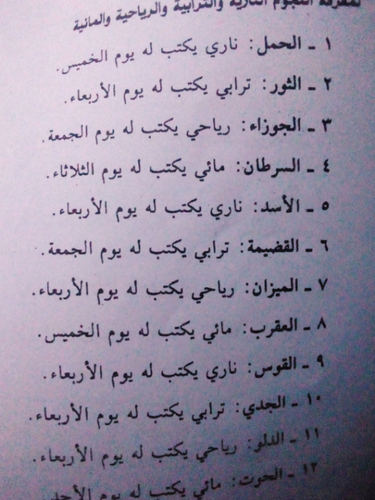 لمعرفة النجوم النارية والترابية والرياحية والمائية
١ ـ الحمل: ناري يكتب له يوم الخميس.
٢ ـ الثور: ترابي يكتب له يوم الأربعاء.
٣ ـ الجوزاء: رياحي يكتب له يوم الجمعة.
٤ ـ السرطان: مائي يكتب له يوم الثلاثاء.
٥ ـ الأسد: ناري يكتب له يوم الأربعاء.
٦ ـ القضيمة: ترابي يكتب له يوم الجمعة.
٧ ـ الميزان: رياحي يكتب له يوم الأربعاء.
٨ ـ العقرب: مائي يكتب له يوم الخميس.
٩ ـ القوس: ناري يكتب له يوم الأربعاء.
١٠ ـ الجدي: ترابي يكتب له يوم الأربعاء.
١١ ـ الدلو: رياحي يكتب له يوم الأربعاء.
١٢ ـ الحوت: مائي يكتب له يوم الأحد.